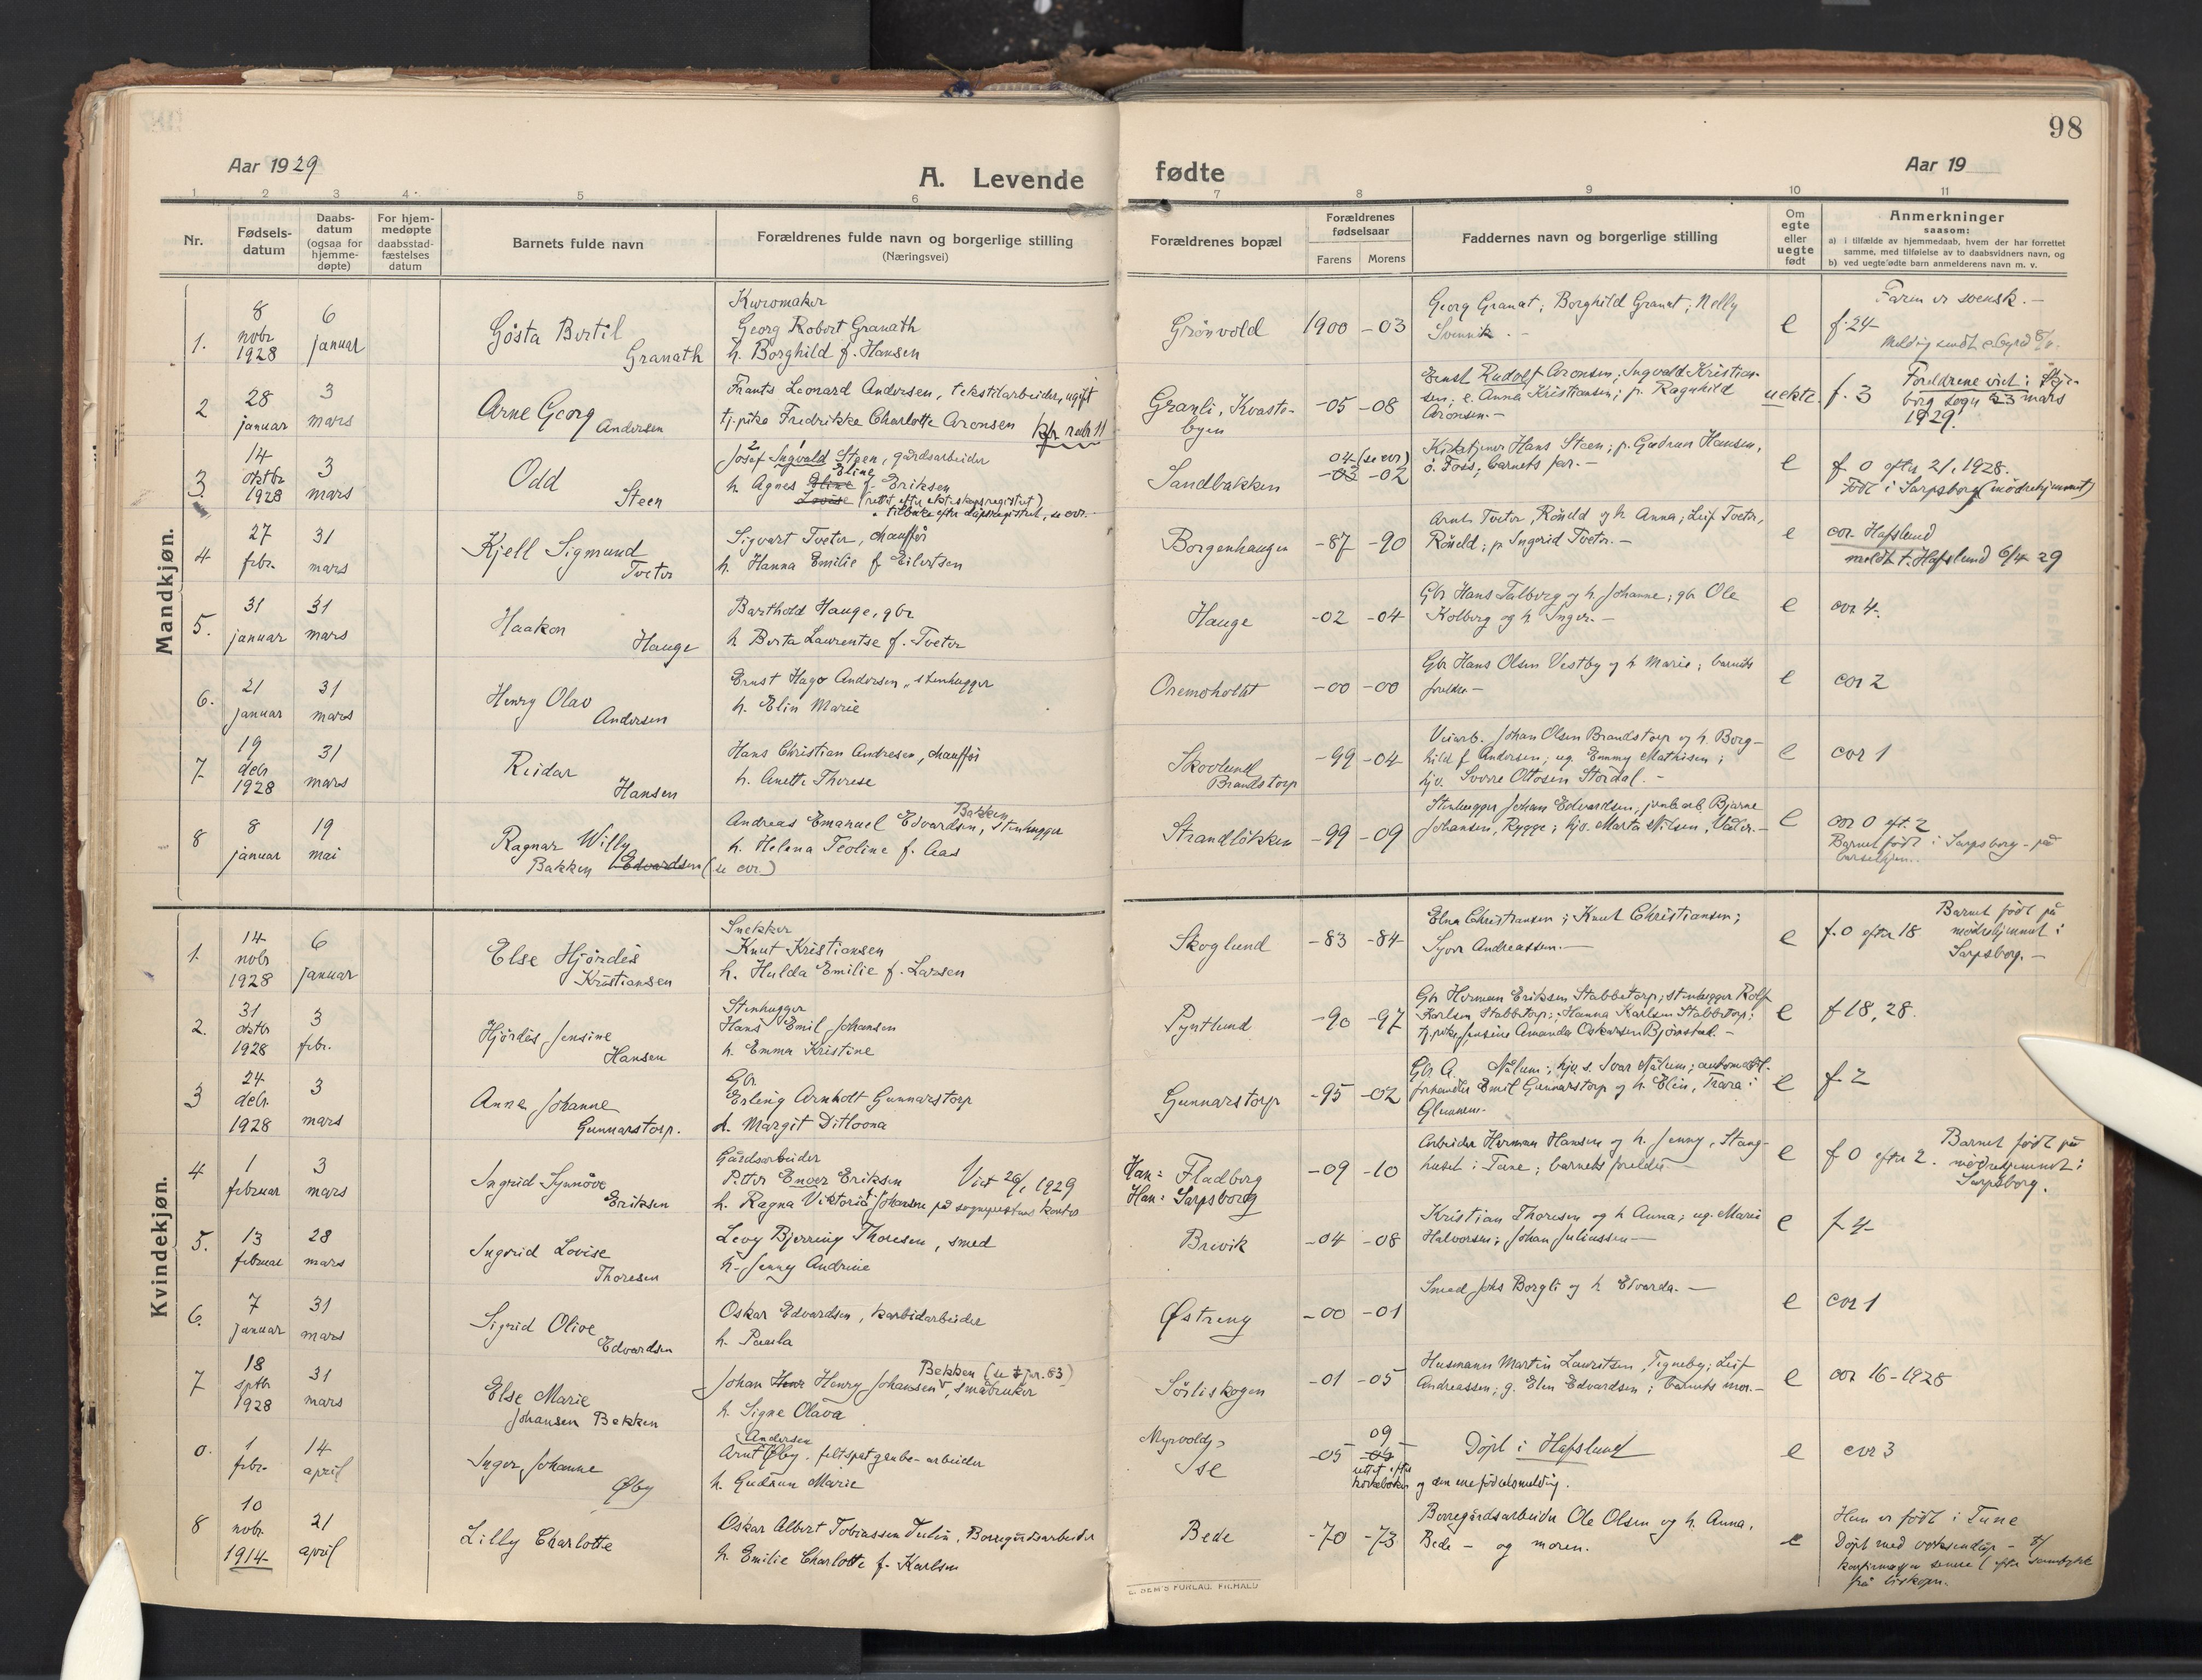 98
Aar 1929
A. Levende fødte
Aar 19
1 2 3 4 5 6 7 8 9 10 11
Nr.
Fødsels-
datum
Daabs-
datum
(ogsaa for
hjemme-
døpte)
For hjem-
medøpte
daabsstad-
fæstelses
datum
Barnets fulde navn
Forældrenes fulde navn og borgerlige stilling
(Næringsvei)
Forældrenes bopæl
Forældrenes
fødselsaar
Farens Morens
Faddernes navn og borgerlige stilling
Om
egte
eller
uegte
født
Anmerkninger
saasom:
a) i tilfælde av hjemmedaab, hvem der har forrettet
samme, med tilføielse av to daabsvidners navn, og
b) ved uegte fødte barn anmelderens navn m. v.
Mandkjøn.
1.
8
novbr
1928
6
januar
Gösta Bertil
Granath
Georg Robert Granath
h. Borghild f. Hansen
Grönvold
1900 -03
Georg Granat; Borghild Granat; Nelly
e
Faren er svensk. -
f. 24
2
28
januar
3
mars
Arne Georg
Andersen
Frants Leonard Andersen, tekstilarbeider, ugift
tj.pike Fredrikke Charlotte Aronsen
Granli, Kvaste-
byen
-05 -08
Ernst Rudolf Aronsen; Ingvald Kristian-
sen; e. Anna Kristiansen; p. Ragnhild
Aronsen. -
uekte
f. 3
Foreldrene viet i Skje-
berg sogn 23 mars
1929.
3.
14
oktbr
1928
3
mars
Odd
Steen
2 1
Josef Ingvald Steen, gårdsarbeider
Eline
h. Agnes Eline f. Eriksen
Lovise (rettet efter ekteskapsregistret)
tilbake efter dåpsregistret, se ovr.
Sandbakken
04 (se ovr)
-03 -02
Kirketjener Hans Steen; p. Gudrun Hansen,
ö. Foss; barnets far. -
e
f. 0 efter 21, 1928.
Född i Sarpsborg (mödrehjemmet)
4
27
febr.
31
mars
Kjell Sigmund
Tveter
Sigvart Tveter, chauffør
h. Hanna Emilie f Eilertsen
Borgenhaugen
-87 -90
Arnt Tveter, Röneld og h. Anna; Leif Tveter,
Röneld; p Ingerid Tveter. -
e
cor. Hafslund
meldt t. Hafslund 6/4 29
5.
31
januar
31
mars
Haakon
Hauge
Barthold Hauge, gbr
h Berta Laurentse f. Tveter
Hauge
-02 -04
Gbr Hans Talberg og h. Johanne; gbr Ole
Kolberg og h Inger. -
e
ovr 4.
6.
21
januar
31
mars
Henry Olav
Andersen
Ernst Hago Andersen, stenhugger
h. Elin Marie
Oremoholtet
-00 -00
Gbr Hans Olsen Vestby og h Marie; barnets
foreldre -
e
cor 2
7
19
debr.
1928
31
mars
Reidar
Hansen
Hans Christian Andresen, chauffør
h. Anette Therese
Skovlund
Brandstorp
-99 -04
Veiarb. Johan Olsen Brandstorp og h. Borg-
hild f Andersen; ug. Emmy Mathisen;
hjv. Sverre Ottosen Stordal. -
e
cor 1
8
8
januar
19
mai
Ragnar Willy
Bakken Edvardsen (se ovr.)
Bakken
Andreas Emanuel Edvardsen, stenhugger
h. Helena Teoline f. Aas
Strandløkken
-99 -09
Stenhugger Johan Edvardsen, jernb arb. Bjarne
Johansen, Rygge; hjv. Marta Nilsen, Våler. -
e
cor 0 eft. 2
Barnet född i Sarpsborg - på
Kvindekjøn.
1.
14
nobr
1928
6
januar
Else Hjördis
Kristiansen
Snekker
Knut Kristiansen
h. Hulda Emilie f. Larsen
Skoglund
-83 -84
Elna Christiansen; Knut Christiansen;
Syver Andreassen. -
e
f. 0 efter 18
Barnet född på
mödrehjemmet i
Sarpsborg. -
2.
31
oktbr
1928
3
febr.
Hjördis Jensine
Hansen
Stenhugger
Hans Emil Johansen
h. Emma Kristine
Pyntlund
-90 -97
Gbr Herman Eriksen Stabbetorp; stenhugger Rolf
Karlsen Stabbetorp; Hanna Karlsen Stabbetorp;
tj.pike Jensine Amanda Oskarsen Bjørnstad. -
e
f 18, 28.
3
24
debr.
1928
3
mars
Anne Johanne
Gunnarstorp.
Gbr.
Erling Arnholt Gunnarstorp
h. Margit Ditloona
Gunnarstorp
-95 -02
Gbr A. Nålum; hjv. s. Ivar Nålum; automobil-
forhandler Emil Gunnarstorp og h. Elin, Trara i
Glemmen.
e
f. 2
4
1
februar
3
mars
Ingrid Synnöve
Eriksen
Gårdsarbeider
Petter Enver Eriksen
Viet 26/1 1929
h. Ragna Viktoria f. Johansen på sogneprestens kontor
Fladberg
Han: Sarpsborg
-09 -10
Arbeider Herman Hansen og h. Jenny, Stang-
huset i Tune; barnets foreldre
e
f 0 efter 2.
Barnet född på
mödrehjemmet i
Sarpsborg.
5.
13
februar
28
mars
Ingerid Lovise
Thoresen
Levy Bjerring Thoresen, smed
h. Jenny Andrine
Brevik
-04 -08
Kristian Thoresen og h Anna; ug. Marie
Halvorsen; Johan Juliussen -
e
f 4
6.
7
januar
31
mars
Sigrid Olive
Edvardsen
Oskar Edvardsen, karbidarbeider
h. Paula
Østreng
-00 -01
Smed Johs Borgli og h Edvarda. -
e
cor 1
7
18
septbr
1928
31
mars
Else Marie
Johansen Bekken
Bekken (se jnr. 83)
Johan Henr Henry Johansen, småbruker
h. Signe Olava
Sörliskogen
-01 -05
Husmann Martin Lauritsen, Tigneby; Leif
Andreassen; g. Elen Edvardsen; barnets mor. -
e
cor 16-1928
0.
1
febr.
14
april
Inger Johanne
Øby
Andersen
Arnt Øby, feltspatgrube-arbeider
h. Gudrun Marie
Myrvold,
Ise
09
-05
rettet efter
kirkeboken og den ene fødselsmelding.
Döpt i Hafslund
e
cor 3
8
10
nobr.
1914
21
april
Lilly Charlotte
Oskar Albert Tobiassen Tulin, Borregårdsarbeider
h. Emilie Charlotte f. Karlsen
Bede
-70 -73
Borregårdsarbeider Ole Olsen og h. Anna,
Bede - og moren.
e
Hun er född i Tune
Döpt med voksendåp -
fra biskopen.